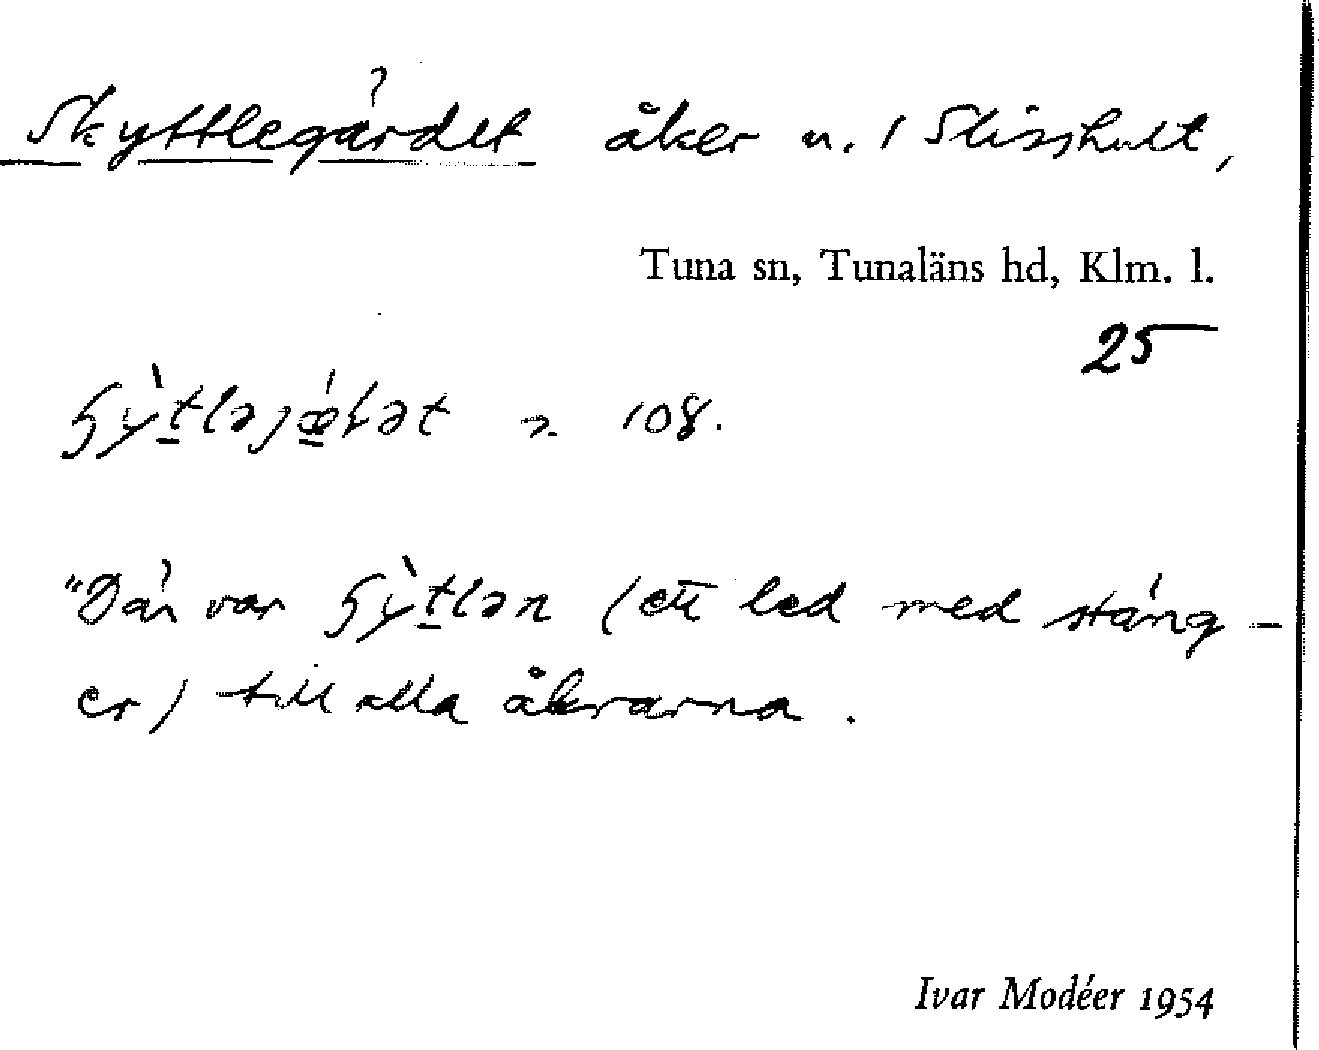 Skyttlegärdet åker u. / Slisshult,
Tuna sn, Tunaläns hd, Klm. l.
25
108.
"Där var (ett led med stäng-
er) till alla åkrarna.
Ivar Modéer 1954